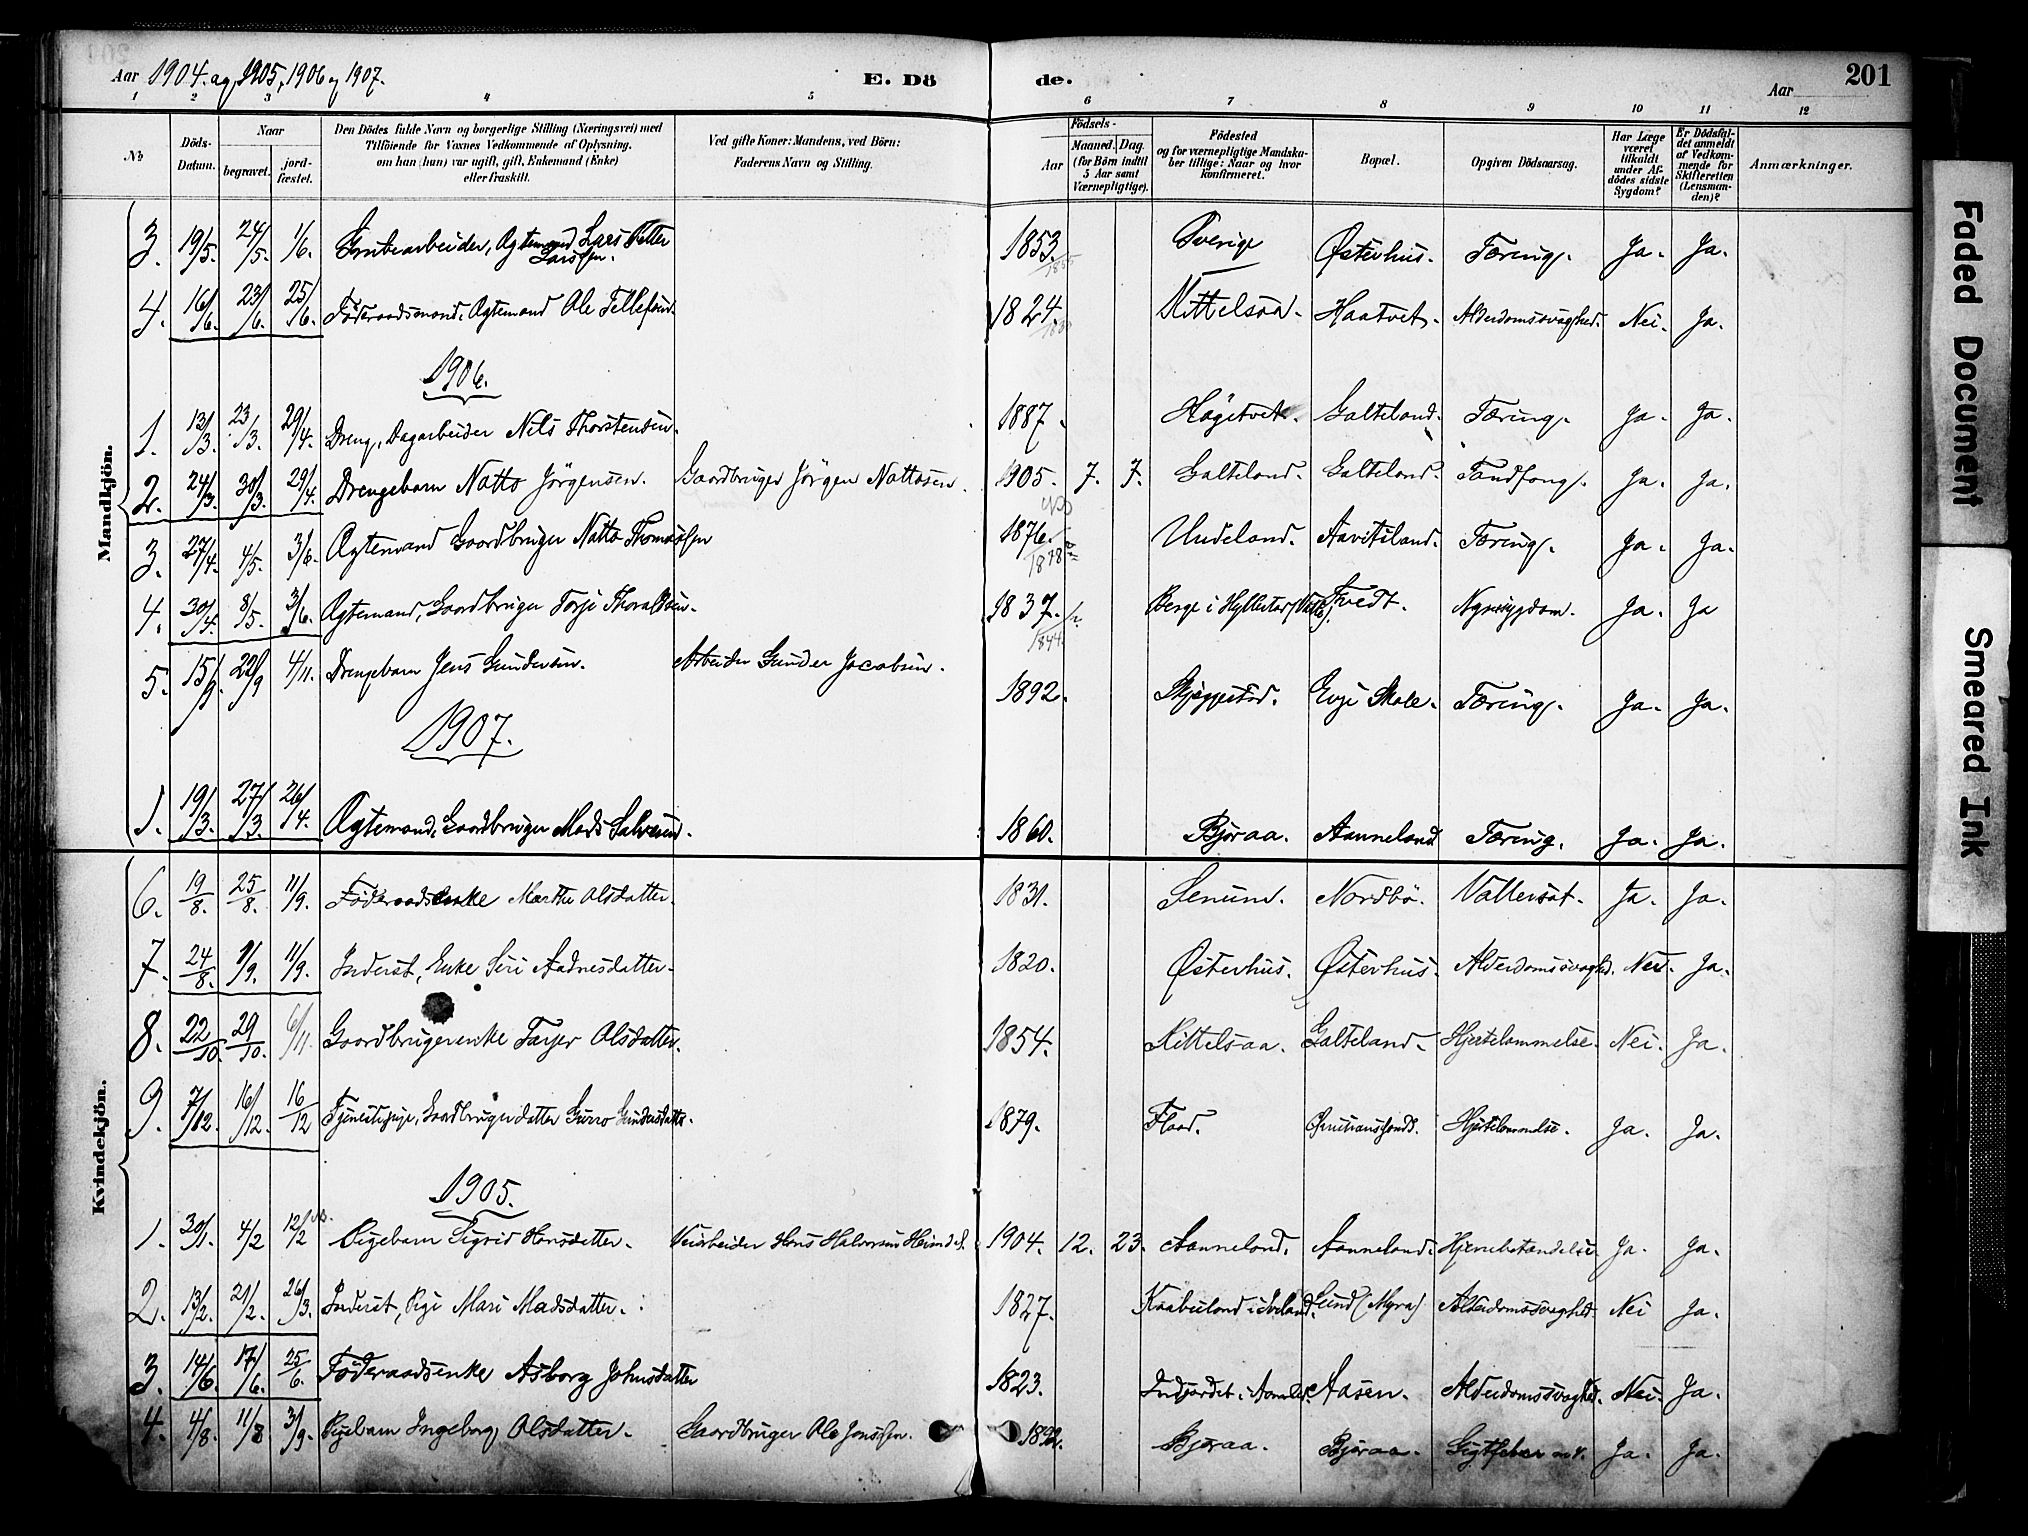 Aar 1904. og 1905, 1906 og 1907.
E. Dö
de.
Aar
201
1 2 3 4 5 6 7 8 9 10 11 12
No
Döds-Datum.
Naar
begravet.
jord-fæstet.
Den Dödes fulde Navn og borgerlige Stilling (Næringsvei) med
Tilföiende for Voxnes Vedkommende af Oplysning,
om han (hun) var ugift, gift, Enkemand (Enke)
eller fraskilt.
Ved gifte Koner: Mandens, ved Börn:
Faderens Navn og Stilling.
Födsels-
Aar
Maaned. Dag.
(for Börn indtil
5 Aar samt
Værnepligtige).
Födested
og for værnepligtige Mandska-
ber tillige: Naar og hvor
konfirmeret.
Bopæl.
Opgiven Dödsaarsag.
Har Læge
været
tilkaldt
under Af-
dödes sidste
Sygdom?
Er Dödsfal-
det anmeldt
af Vedkom-
mende for
Skifteretten
(Lensman-
den)?
Anmærkninger.
Mandkjön.
3. 19/5. 24/5. 1/6. Grubearbeider, Ægtemand Lars Petter Larssen. 1853. Sverige Østerhus. Tæring. Ja. Ja.
4. 16/6. 23/6. 25/6. Föderaadsmand, Ægtemand Ole Tellefsen. 1824. Kittelsaa. Haatvet. Alderdomssvaghed. Nei. Ja.
1906.
1. 13/3. 23/3. 29/4. Dreng, Dagarbeider Nils Thorstensen. 1887. Högetveit. Galteland. Tæring. Ja. Ja.
2. 24/3. 30/3. 29/4. Drengebarn Natto Jörgensen. Gaardbruger Jörgen Nattosen. 1905. 7. 7. Galteland. Galteland. Tandfong. Ja. Ja.
3. 27/4. 4/5. 3/6. Ægtemand Gaardbruger Natto Thomassen 1876. 1878 Uudeland. Aavitsland. Tæring. Ja. Ja.
4. 30/4. 8/5. 3/6. Ægtemand, Gaardbruger Torje Thoralfsen. 1837. 1844. Berge i Hyllestad Tvedt. Nyresygdom. Ja. Ja
5. 15/9. 22/9 4/11. Drengebarn Jens Gundersen. Arbeider Gunder Jacobsen. 1892. Skjeggestad. Evje Skole. Tæring. Ja. Ja.
1907.
1. 19/3. 27/3. 26/4. Ægtemand, Gaardbruger Mads Salvesen. 1860. Bjoraa. Aanneland Tæring. Ja. Ja.
Kvindekjön.
6. 19/8. 25/8. 11/9. Föderaadsenke Marthe Olsdatter. 1831. Senum. Nordbö. Vattersot. Ja. Ja.
7. 24/8. 9/9. 11/9. Inderst, Enke Siri Aadnesdatter. 1820. Østerhus. Østerhus. Alderdomssvaghed. Nei. Ja.
8. 22/10. 29/10. 6/11. Gaardbrugerenke Tarjer Olsdatter. 1854. Kittelsaa. Galteland. Hjertelammelse. Nei. Ja.
9. 7/12. 16/12. 16/12 Tjenestepige, Gaardbrugerdatter Gurro Gundersdatter. 1879. Flaad. Christianssands. Hjertelammelse. Ja. Ja.
1905.
1. 30/1. 4/2 12/2 Pigebarn Sigrid Hansdatter. Veiarbeider Hans Halvorsen Heimdal. 1904. 12. 23. Aanneland. Aanneland. Hjernebetændelse. Ja. Ja.
2. 13/2. 21/2. 26/3. Inderst, Pige Mari Madsdatter. 1827. Kaabuland i Iveland. Lund (Myra) Alderdomssvaghed. Nei Ja.
3. 14/6. 17/6. 25/6. Föderaadsenke Asborg Johnsdatter 1823. Aasen. Alderdomssvaghed. Nei. Ja.
4. 4/8. 11/8 3/9. Pigebarn Ingeborg Olsdatter. Gaardbruger Ole Jonssen. Bjoraa. Bjoraa. Gigtfeber Ja. Ja.
Faded Document
Smeared Ink